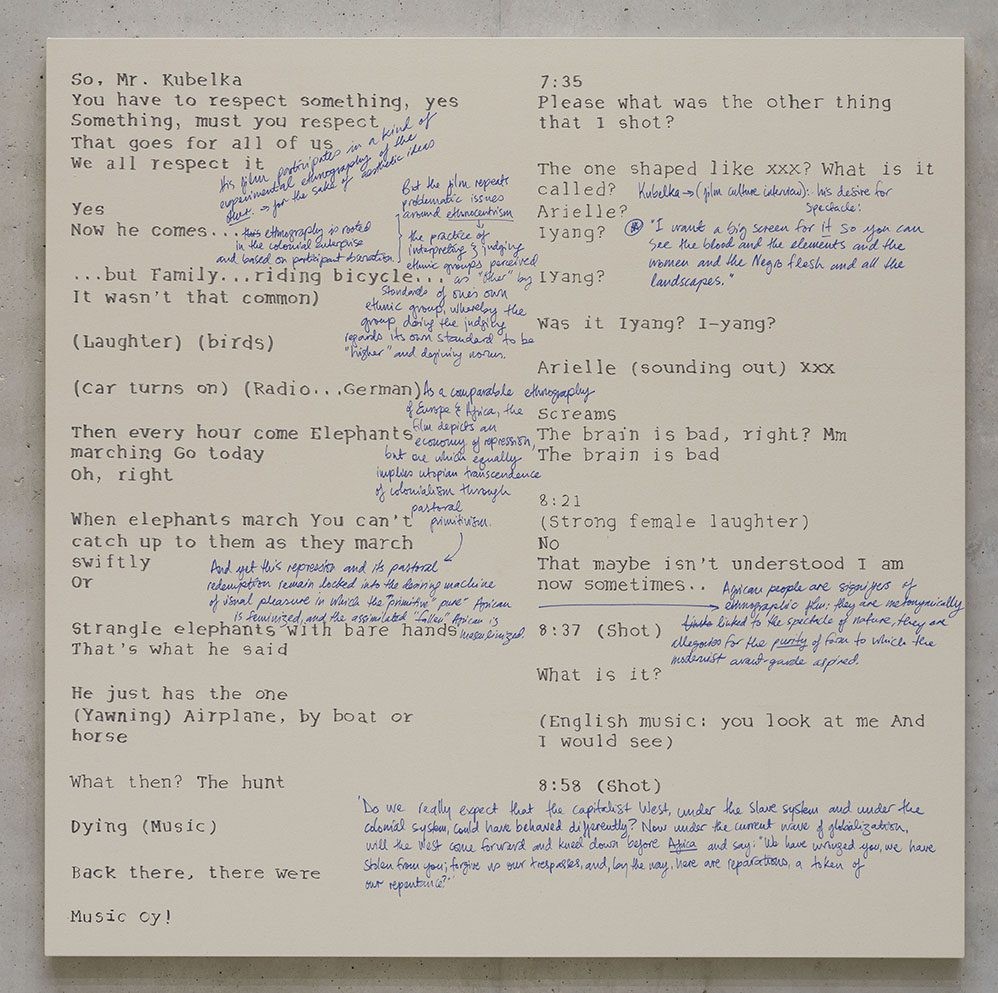 So, Mr. Kubelka
You have to respect something, yes
Something, must you respect
That goes for all of us
We all respect it
His film participates in a kind of
experimental ethnography of the
other. → for the sake of aesthetic ideas
Yes
Now he comes...
this ethnography is rooted
in the colonial enterprise
and based on participant observation
But the film repeats
problematic issues
around ethnocentrism
the practice of
interpreting & judging
ethnic groups perceived
as "other" by
standards of one's own
ethnic group, whereby the
group doing the judging
regards its own standard to be
"higher" and defining norm.
...but Family...riding bicycle...
It wasn't that common)
(Laughter) (birds)
(Car turns on) (Radio...German)
As a comparable ethnography
of Europe & Africa, the
film depicts an
economy of repression,
but one which equally
implies utopian transcendence
of colonialism through
pastoral
primitivism.
Then every hour come Elephants
marching Go today
Oh, right
When elephants march You can't
catch up to them as they march
swiftly
Or
And yet this repression and its pastoral
redemption remain locked into the desiring machine
of visual pleasure in which the "primitive" "pure" African
is feminized, and the assimilated "fallen" African is
masculinized.
Strangle elephants with bare hands
That's what he said
He just has the one
(Yawning) Airplane, by boat or
horse
What then? The hunt
Dying (Music)
Back there, there were
Music Oy!
7:35
Please what was the other thing
that I shot?
The one shaped like xxx? What is it
called?
Kubelka → (film culture interview): his desire for
spectacle:
Arielle?
Iyang?
"I want a big screen for it so you can
see the blood and the elements and the
women and the Negro flesh and all the
landscapes."
Iyang?
Was it Iyang? I-yang?
Arielle (sounding out) xxx
Screams
The brain is bad, right? Mm
The brain is bad
8:21
(Strong female laughter)
No
That maybe isn't understood I am
now sometimes..
African people are signifiers of
ethnographic film: they are metonymically
linked to the spectacle of nature, they are
allegories for the purity of form to which the
modernist avant-garde aspired.
8:37 (Shot)
What is it?
(English music: you look at me And
I would see)
8:58 (Shot)
"Do we really expect that the capitalist West, under the slave system and under the
colonial system, could have behaved differently? Now under the current wave of globalization,
will the West come forward and kneel down before Africa and say: "We have wronged you, we have
stolen from you; forgive us our trespasses, and, by the way, here are reparations, a token of
our repentance?"